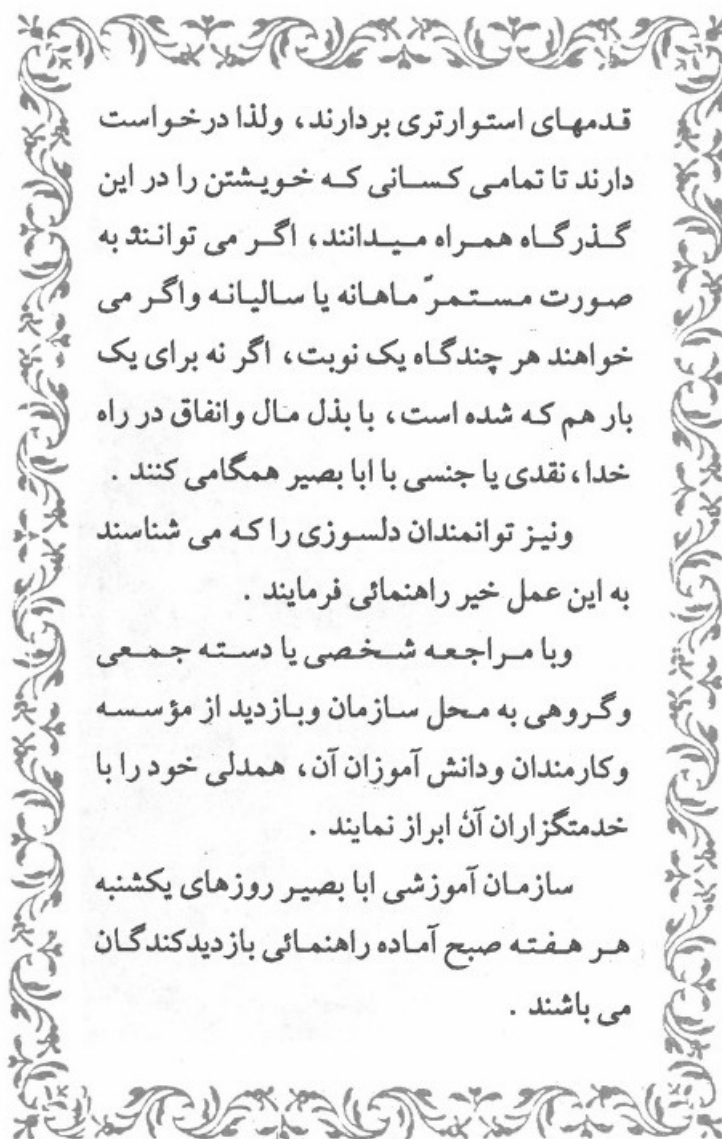 قدمهای استوارتری بردارند، ولذا درخواست
دارند تا تمامی کسانی که خویشتن را در این
گذرگاه همراه میدانند، اگر می توانند به
صورت مستمرّ ماهانه یا سالیانه واگر می
خواهند هر چندگاه یک نوبت، اگر نه برای یک
بار هم که شده است، با بذل مال وانفاق در راه
خدا، نقدی یا جنسی با ابا بصیر همگامی کنند .
ونیز توانمندان دلسوزی را که می شناسند
به این عمل خیر راهنمائی فرمایند .
وبا مراجعه شخصی یا دسته جمعی
وگروهی به محل سازمان وبازدید از مؤسسه
وکارمندان ودانش آموزان آن، همدلی خود را با
خدمتگزاران آن ابراز نمایند .
سازمان آموزشی ابا بصیر روزهای یکشنبه
هر هفته صبح آماده راهنمائی بازدیدکندگان
می باشند .